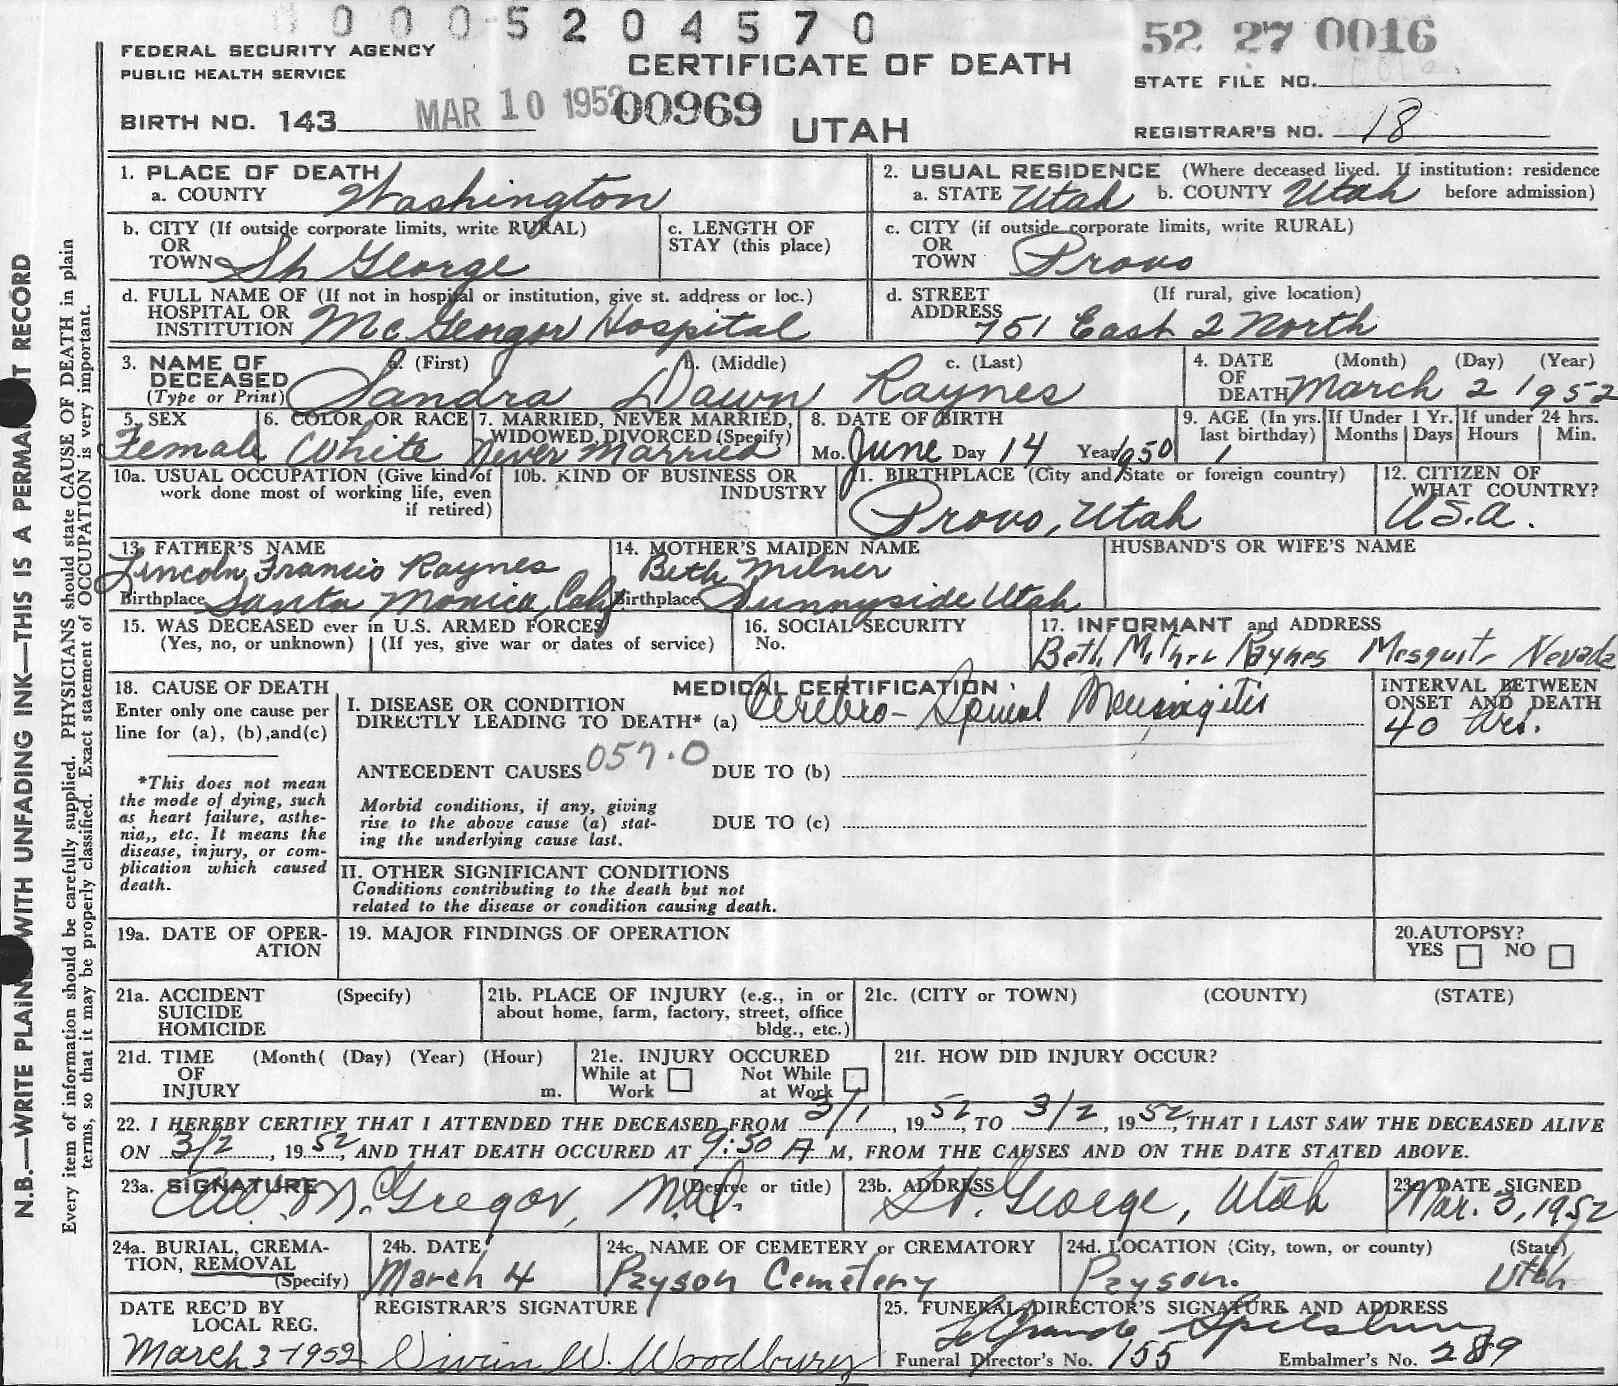 0 0 0 0 5 2 0 4 5 7 0
52 27 0016
FEDERAL SECURITY AGENCY
PUBLIC HEALTH SERVICE
CERTIFICATE OF DEATH
STATE FILE NO.
BIRTH NO. 143
MAR 10 1952
00969
UTAH
REGISTRAR'S NO. 18
1. PLACE OF DEATH
a. COUNTY Washington
2. USUAL RESIDENCE (Where deceased lived. If institution: residence
a. STATE Utah b. COUNTY Utah before admission)
b. CITY (If outside corporate limits, write RURAL)
OR
TOWN St George
c. LENGTH OF
STAY (this place)
c. CITY (if outside corporate limits, write RURAL)
OR
TOWN Provo
d. FULL NAME OF (If not in hospital or institution, give st. address or loc.)
HOSPITAL OR
INSTITUTION McGregor Hospital
d. STREET (If rural, give location)
ADDRESS
751 East 2 North
3. NAME OF DECEASED (Type or Print)
a. (First) b. (Middle) c. (Last)
Sandra Dawn Raynes
4. DATE (Month) (Day) (Year)
OF
DEATH March 2 1952
5. SEX
Female
6. COLOR OR RACE
White
7. MARRIED, NEVER MARRIED,
WIDOWED, DIVORCED (Specify)
Never Married
8. DATE OF BIRTH
Mo. June Day 14 Year 1950
9. AGE (In yrs. last birthday)
1
If Under 1 Yr.
Months Days
If under 24 hrs.
Hours Min.
10a. USUAL OCCUPATION (Give kind of
work done most of working life, even
if retired)
10b. KIND OF BUSINESS OR
INDUSTRY
11. BIRTHPLACE (City and State or foreign country)
Provo, Utah
12. CITIZEN OF
WHAT COUNTRY?
U.S.A.
13. FATHER'S NAME
Lincoln Francis Raynes
Birthplace Santa Monica, Calif
14. MOTHER'S MAIDEN NAME
Beth Milner
Birthplace Sunnyside Utah
HUSBAND'S OR WIFE'S NAME
15. WAS DECEASED ever in U.S. ARMED FORCES
(Yes, no, or unknown) (If yes, give war or dates of service)
16. SOCIAL SECURITY
No.
17. INFORMANT and ADDRESS
Beth Milner Raynes Mesquite Nevada
18. CAUSE OF DEATH
Enter only one cause per
line for (a), (b),and(c)
*This does not mean
the mode of dying, such
as heart failure, asthe-
nia,, etc. It means the
disease, injury, or com-
plication which caused
death.
MEDICAL CERTIFICATION
I. DISEASE OR CONDITION
DIRECTLY LEADING TO DEATH* (a) Cerebro-Spinal Meningitis
INTERVAL BETWEEN
ONSET AND DEATH
40 hrs.
ANTECEDENT CAUSES 057.0 DUE TO (b)
Morbid conditions, if any, giving
rise to the above cause (a) stat-
ing the underlying cause last.
DUE TO (c)
II. OTHER SIGNIFICANT CONDITIONS
Conditions contributing to the death but not
related to the disease or condition causing death.
19a. DATE OF OPER-
ATION
19. MAJOR FINDINGS OF OPERATION
20.AUTOPSY?
YES NO
21a. ACCIDENT (Specify)
SUICIDE
HOMICIDE
21b. PLACE OF INJURY (e.g., in or
about home, farm, factory, street, office
bldg., etc.)
21c. (CITY or TOWN) (COUNTY) (STATE)
21d. TIME (Month( (Day) (Year) (Hour)
OF
INJURY m.
21e. INJURY OCCURED
While at Work Not While at Work
21f. HOW DID INJURY OCCUR?
22. I HEREBY CERTIFY THAT I ATTENDED THE DECEASED FROM 3/1, 1952, TO 3/2, 1952, THAT I LAST SAW THE DECEASED ALIVE
ON 3/2, 1952, AND THAT DEATH OCCURED AT 9:50 A M, FROM THE CAUSES AND ON THE DATE STATED ABOVE.
23a. SIGNATURE (Degree or title)
McGregor, M.D.
23b. ADDRESS
St. George, Utah
23c. DATE SIGNED
Mar. 3, 1952
24a. BURIAL, CREMA-
TION, REMOVAL
(Specify)
24b. DATE
March 4
24c. NAME OF CEMETERY or CREMATORY
Payson Cemetery
24d. LOCATION (City, town, or county) (State)
Payson. Utah
DATE REC'D BY
LOCAL REG.
March 3-1952
REGISTRAR'S SIGNATURE
Vivian W. Woodbury
25. FUNERAL DIRECTOR'S SIGNATURE AND ADDRESS
LeGrande Spilsbury
Funeral Director's No. 155 Embalmer's No. 289
N.B.—WRITE PLAINLY WITH UNFADING INK—THIS IS A PERMANENT RECORD
Every item of information should be carefully supplied. PHYSICIANS should state CAUSE OF DEATH in plain
terms, so that it may be properly classified. Exact statement of OCCUPATION is very important.